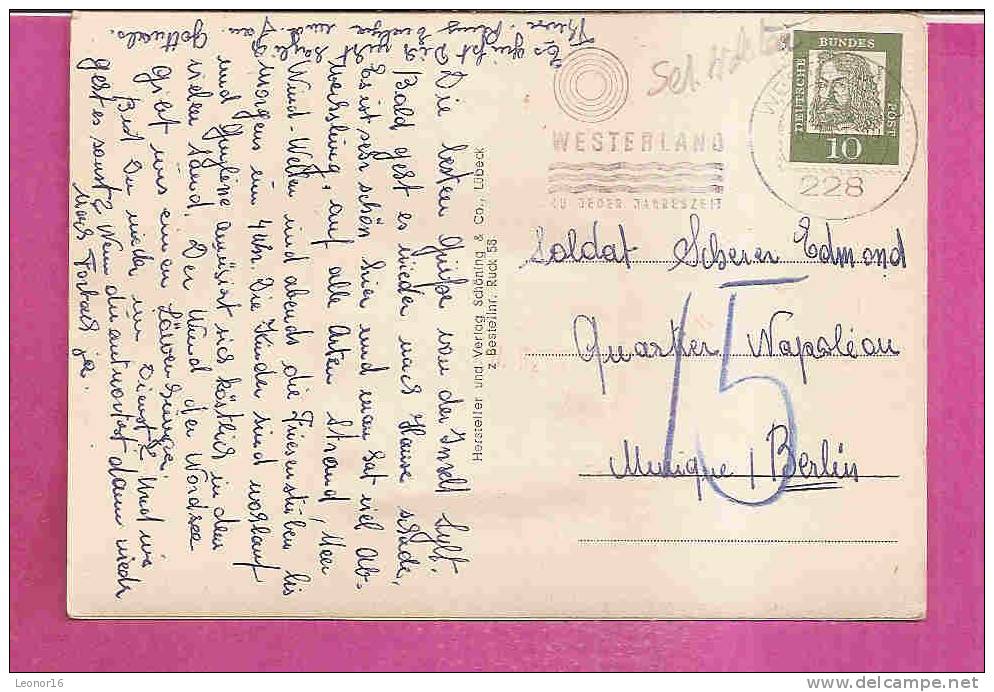 Die besten Grüße von der Insel Sylt.
Bald gest es wieder nach Hause, schade,
Es ist sehr schön hier und man hat viel Ab-
wechslung, auf alle Arten Strand, Meer
Wind-Wetter und abends die Friesenstuben bis
Morgens um 4 Uhr. Die Kinder sind wohlauf
und amüsiert sich köstlich in dem
vielen Sand. Der Wind der Nordsee
giebt uns einen Löwenhunger.
Bist Du wieder im Dienst? Und wie
gest es sonst? Wenn du antwortest dann wieder
nach Forbach ja.
Es grüßt Dich
Hersteller und Verlag Schöning & Co., Lübeck
z Bestellnr. Rück 58
WESTERLAND
ZU JEDER JAHRESZEIT
228
DEUTSCHE BUNDES POST
10
Soldat Scherer Edmond
Quartier Napoléon
Munique / Berlin
15
Leonor16
www.delcampe.net